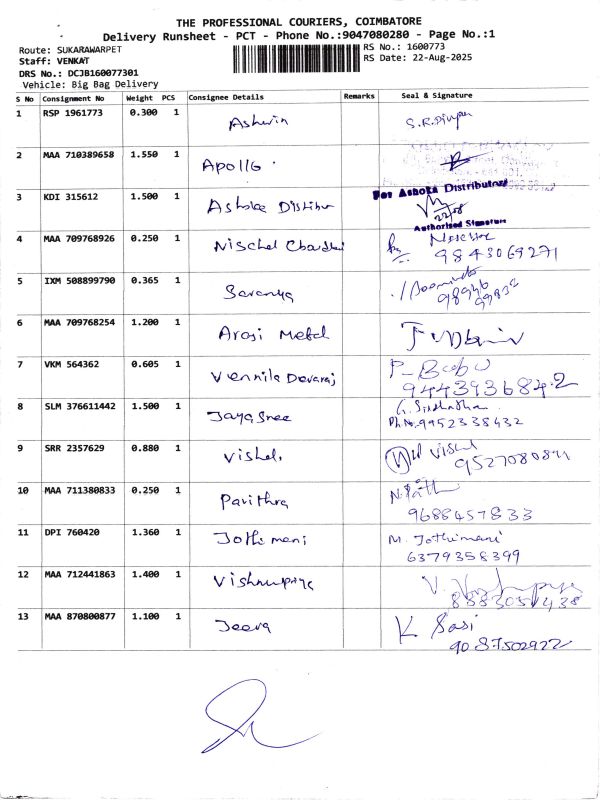 THE PROFESSIONAL COURIERS, COIMBATORE
Delivery Runsheet - PCT - Phone No.:9047080280 - Page No.:1
Route: SUKARAWARPET
RS No.: 1600773
Staff: VENKAT
RS Date: 22-Aug-2025
DRS No.: DCJB160077301
Vehicle: Big Bag Delivery
S No Consignment No Weight PCS Consignee Details Remarks Seal & Signature
1 RSP 1961773 0.300 1 Ashwin
2 MAA 710389658 1.550 1 Apollo
For Ashoka Distributors
3 KDI 315612 1.500 1 Ashoka
22/08
Authorised Signature
4 MAA 709768926 0.250 1 Nischal
9843069271
5 IXM 508899790 0.365 1 Saranya
6 MAA 709768254 1.200 1 Arasi Metal
7 VKM 564362 0.605 1 Vennila Devaraj P-Babu
9443936842
8 SLM 376611442 1.500 1 Jayasree
Ph No. 9952338432
9 SRR 2357629 0.880 1 Vishal
10 MAA 711380833 0.250 1 Pavithra
9688457833
11 DPI 760420 1.360 1 Jothimani M. Jothimani
6379358399
12 MAA 712441863 1.400 1 Vishnupriya
13 MAA 870800877 1.100 1 Jeeva K Sasi
9087502922